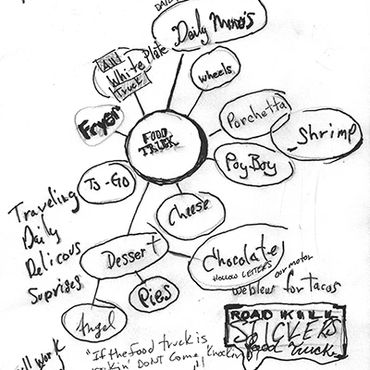 Daily Menu's
All
White Plate
Truck
wheels
Fryer
FOOD
TRUCK
Porchetta
Shrimp
PoyBoy
To-Go
Cheese
Traveling
Daily
Delicous
Suprises
Dessert
Chocolate
HOLLOW LETTERS
our motor
we bleur for tacos
Pies
Angel
ROAD KILL
STICKERS
food truck
"If the Food truck is
DON'T Come Knockin
work